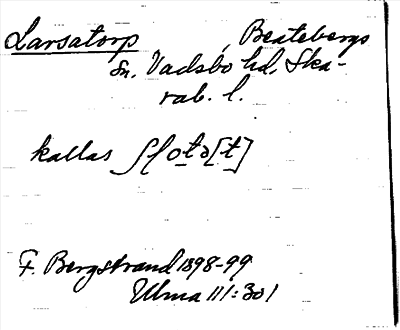 Larsatorp, Beatebergs
sn, Vadsbo hd, Ska-
rab. l.
kallas ʃɭotə[t]
F. Bergstrand 1898-99
Ulma 111:301